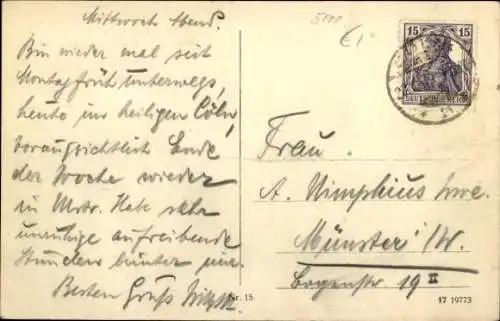 Mittwoch Abend.
Bin wieder mal seit
Montag früh unterwegs,
heute im heiligen Cöln,
voraussichtlich Ende
der Woche wieder
in Mstr. Habe sehr
unruhige aufreibende
Stunden hinter mir.
Besten Gruß
5111
€1
15 15
DEUTSCHES REICH
Frau
A. Nimphius Wwe.
Münster i/W.
Bogenstr. 19 II
Nr. 15
17 19773